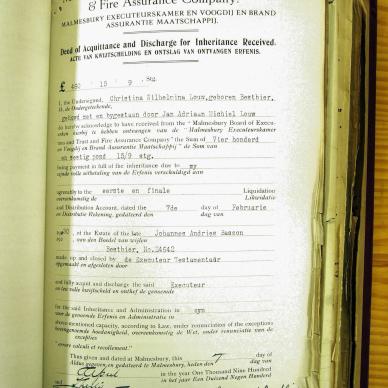 & Fire Assurance Company.
MALMESBURY EXECUTEURSKAMER EN VOOGDIJ EN BRAND
ASSURANTIE MAATSCHAPPIJ.
Deed of Acquittance and Discharge for Inheritance Received.
ACTE VAN KWIJTSCHELDING EN ONTSLAG VAN ONTVANGEN ERFENIS.
£ 460 15 9. Stg.
I, the Undersigned, Christina Wilhelmina Louw, geboren Besthier,
Ik, de Ondergetekende,
gehuwd met en bygestaan door Jan Adriaan Michiel Louw
do hereby acknowledge to have received from the "Malmesbury Board of Execu-
erken hierby te hebben ontvangen van de "Malmesbury Executeurskamer
tors and Trust and Fire Assurance Company" the Sum of Vier honderd
en Voogdij en Brand Assurantie Maatschappij" de Som van
en sestig pond 15/9 stg.
being payment in full of the inheritance due to my
zijnde volle uitbetaling van de Erfenis verschuldigd aan
agreeably to the eerste en finale Liquidation
overeenkomstig de Likwidatie
and Distribution Account, dated the 7de day of Februarie
en Distributie Rekening, gedateerd den van
of the Estate of the late Johannes Andries Basson
van den Boedel van wijlen
Besthier, No.24642
made up and closed by de Executeur Testamentair
opgemaakt en afgesloten door
and fully acquit and discharge the said Executeur
en ten volle kwijtscheld en onthef de genoemde
for the said Inheritance and Administration in syn
voor de genoemde Erfenis en Administratie in
above mentioned capacity, according to Law, under renunciation of the exceptions
bovengemelde hoedanigheid, overeenkomstig de Wet, onder renunciatie van de
excepties
"errore calculi et recollement."
Thus given and dated at Malmesbury, this 7 day of
Aldus gegeven en gedateerd te Malmesbury, heden den dag van
April in the year One Thousand Nine Hundred
in het jaar Een Duizend Negen Honderd
and